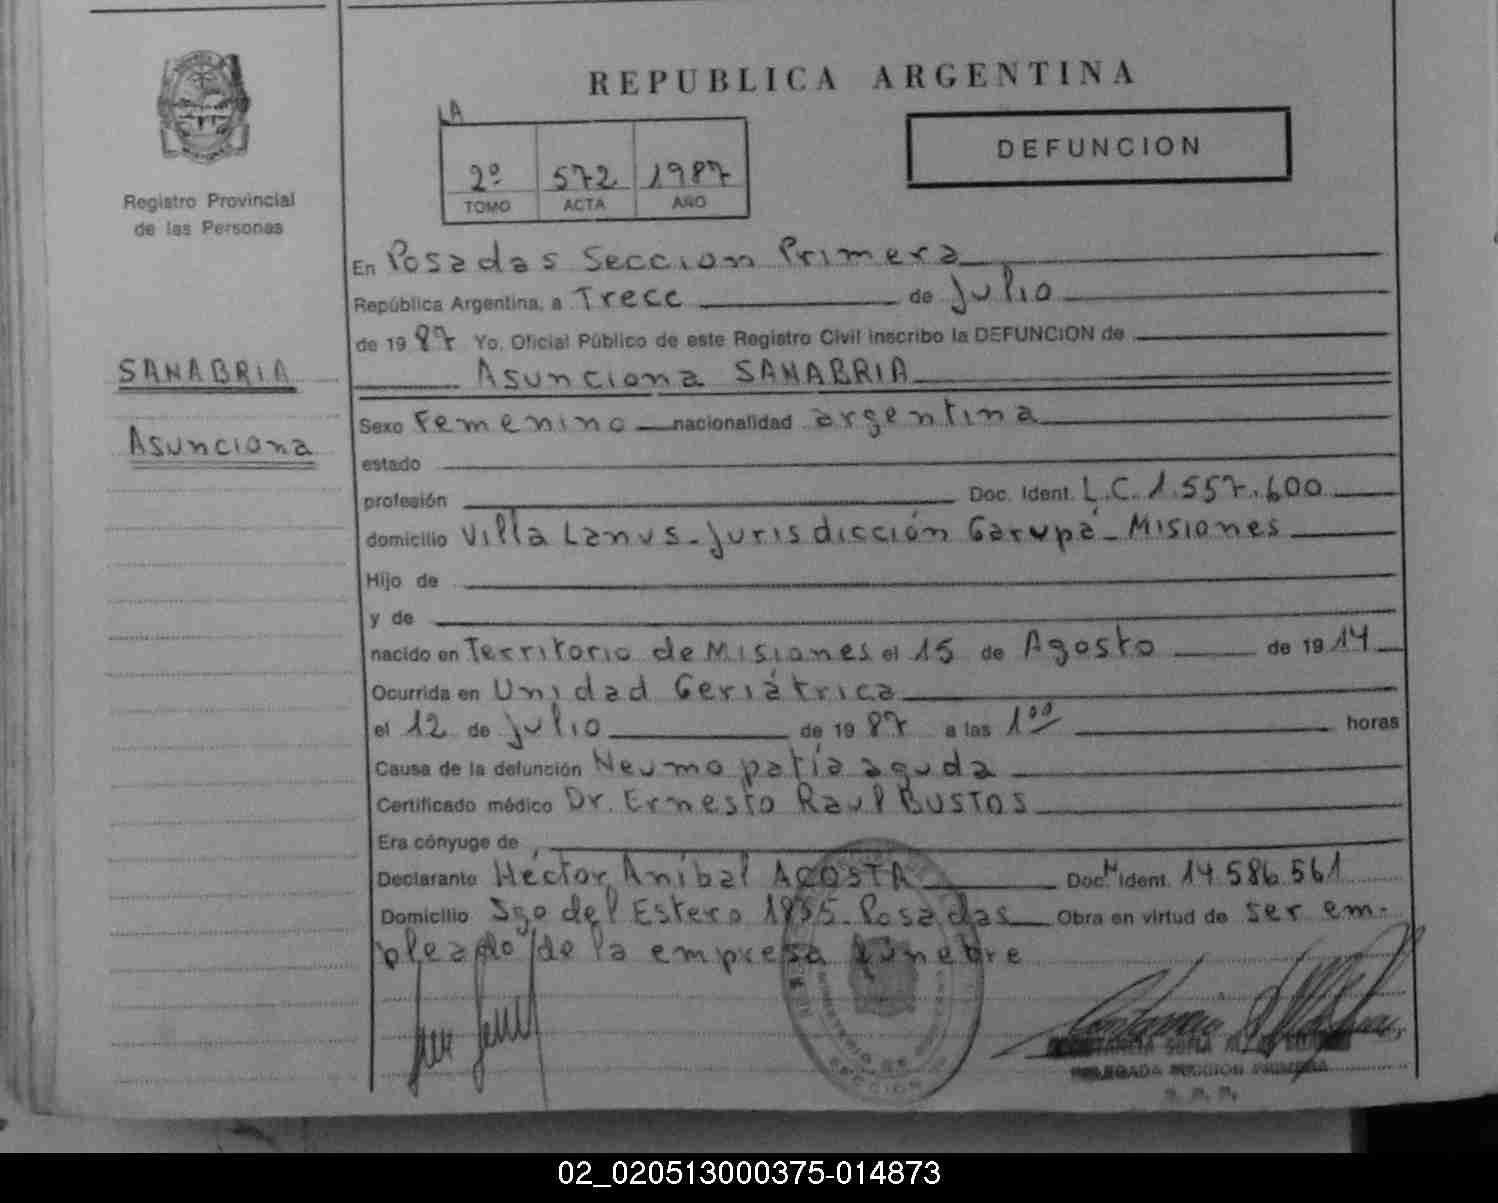 REPUBLICA ARGENTINA
LA
DEFUNCION
2º 572 1987
TOMO ACTA AÑO
Registro Provincial
de las Personas
SANABRIA
Asunciona
En Posadas Seccion Primera
República Argentina, a Trece de Julio
de 1987 Yo, Oficial Público de este Registro Civil inscribo la DEFUNCION de
Asunciona SANABRIA
Sexo Femenino nacionalidad argentina
estado
profesión Doc. Ident. L.C. 1.557.600
domicilio Villa Lanus-Jurisdicción Garupá-Misiones
Hijo de
y de
nacido en Territorio de Misiones el 15 de Agosto de 1914
Ocurrida en Unidad Geriátrica
el 12 de Julio de 1987 a las 1⁰⁰ horas
Causa de la defunción Neumopatía aguda
Certificado médico Dr. Ernesto Raul BUSTOS
Era cónyuge de
Declarante Héctor Aníbal ACOSTA Doc. Ident. 14.586.561
Domicilio Sgo del Estero 1855-Posadas Obra en virtud de ser em-
pleado de la empresa fúnebre
DELEGADA SECCION PRIMERA
02_020513000375-014873